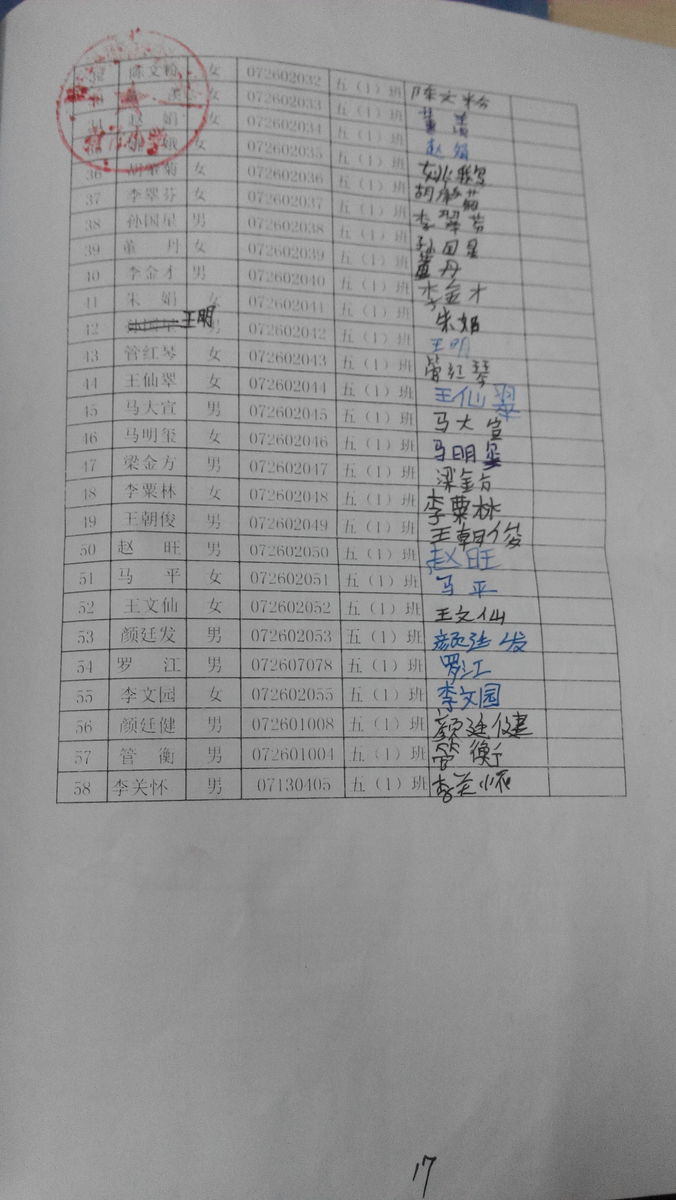 32 陈文粉 女 072602032 五（1）班 陈文粉
女 072602033 五（1）班 董
34 赵 娟 女 072602034 五（1）班 赵娟
娥 女 072602035 五（1）班
36 胡 菊 女 072602036 五（1）班 胡 菊
37 李翠芬 女 072602037 五（1）班 李翠芬
38 孙国星 男 072602038 五（1）班 孙国星
39 董 丹 女 072602039 五（1）班 董丹
40 李金才 男 072602040 五（1）班 李金才
41 朱 娟 女 072602041 五（1）班 朱娟
42 王明 男 072602042 五（1）班 王明
43 管红琴 女 072602043 五（1）班 管红琴
44 王仙翠 女 072602044 五（1）班 王仙翠
45 马大宣 男 072602045 五（1）班 马大宣
46 马明玺 女 072602046 五（1）班 马明玺
47 梁金方 男 072602047 五（1）班 梁金方
48 李粟林 女 072602048 五（1）班 李粟林
49 王朝俊 男 072602049 五（1）班 王朝俊
50 赵 旺 男 072602050 五（1）班 赵旺
51 马 平 女 072602051 五（1）班 马平
52 王文仙 女 072602052 五（1）班 王文仙
53 颜廷发 男 072602053 五（1）班 颜廷发
54 罗 江 男 072607078 五（1）班 罗江
55 李文园 女 072602055 五（1）班 李文园
56 颜廷健 男 072601008 五（1）班 颜廷健
57 管 衡 男 072601004 五（1）班 管衡
58 李关怀 男 07130405 五（1）班 李关怀
17